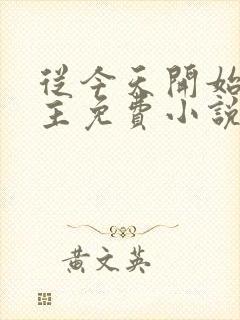 從今天開始
主免費小說
黃文英